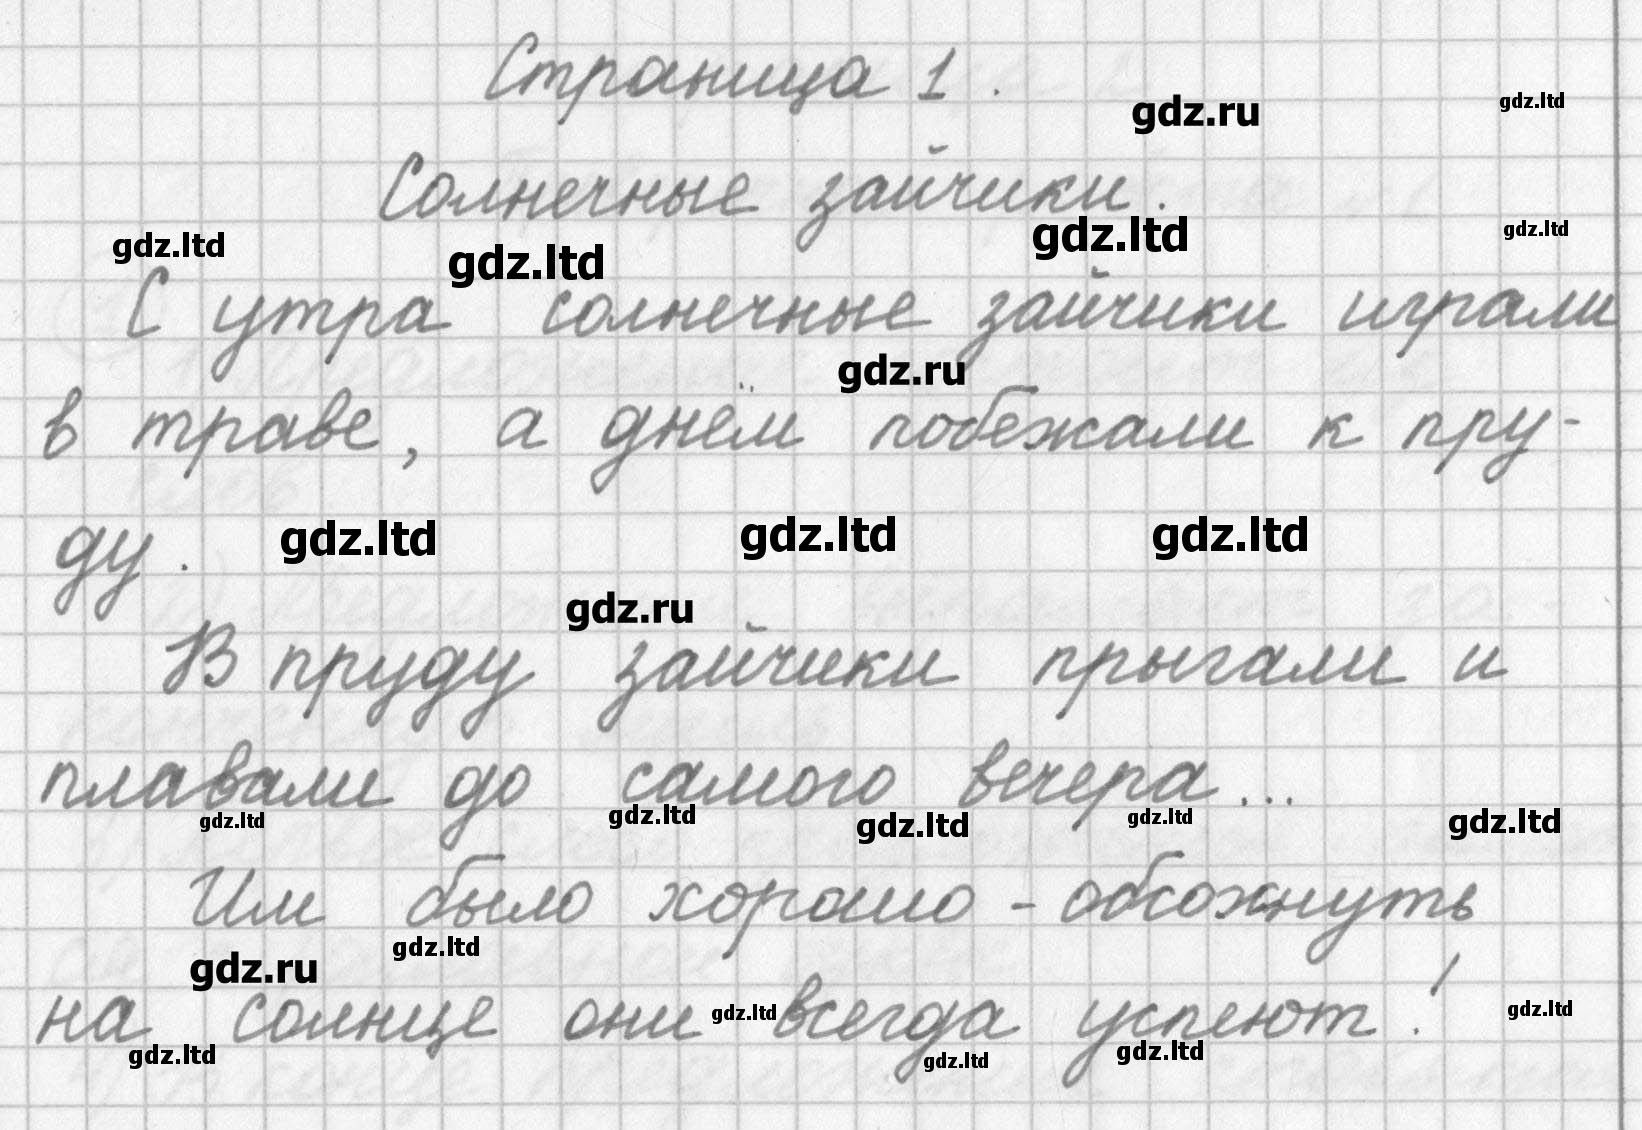 Страница 1.
gdz.ru gdz.ltd
Солнечные зайчики.
gdz.ltd gdz.ltd gdz.ltd gdz.ltd
С утра солнечные зайчики играли
gdz.ru
в траве, а днём побежали к пру-
ду. gdz.ltd gdz.ltd gdz.ltd
gdz.ru
В пруду зайчики прыгали и
плавали до самого вечера...
gdz.ltd gdz.ltd gdz.ltd gdz.ltd gdz.ltd
Им было хорошо - обсохнуть
gdz.ru gdz.ltd
на солнце они gdz.ltd всегда успеют! gdz.ltd
gdz.ltd gdz.ltd gdz.ltd